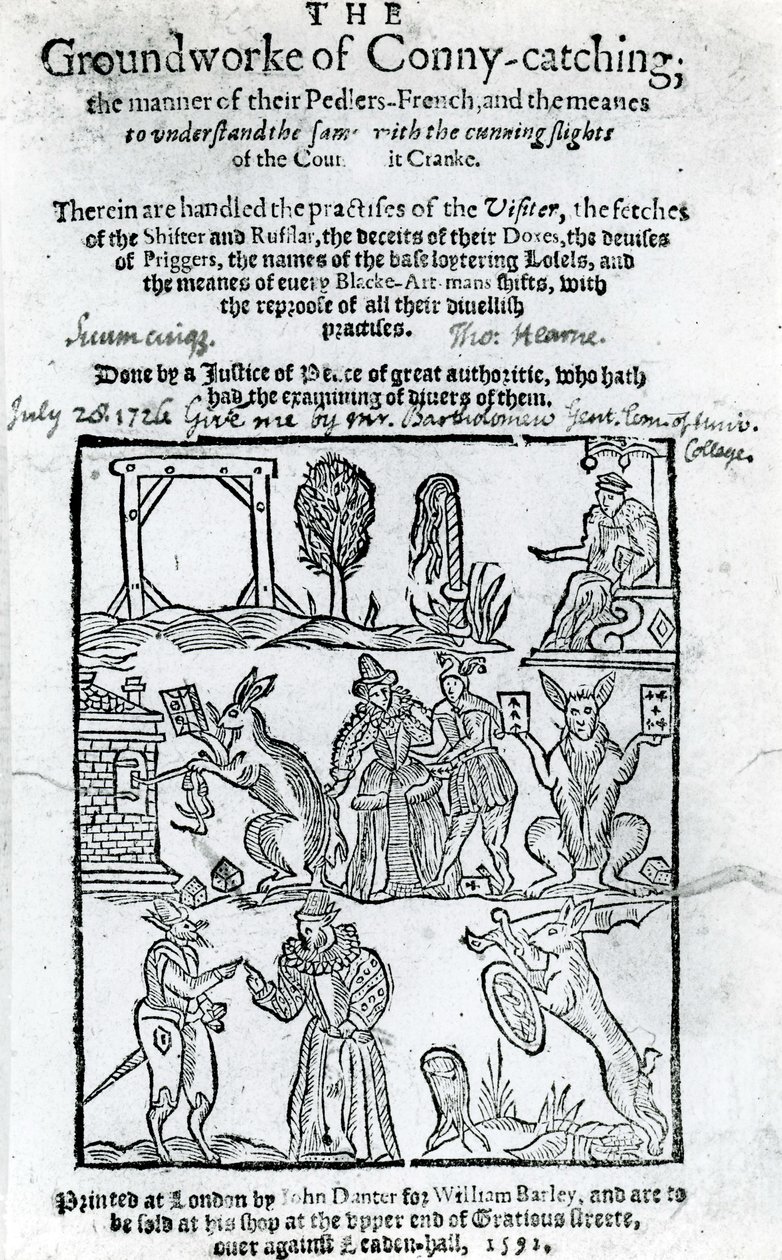 THE
Groundworke of Conny-catching;
the manner of their Pedlers-French, and the meanes
to vnderstand the same with the cunning slights
of the Coun it Cranke.
Therein are handled the practises of the Visiter, the fetches
of the Shifter and Rufflar, the deceits of their Doxes, the deuises
of Priggers, the names of the base loytering Losels, and
the meanes of euery Blacke-Art-mans shifts, with
the reproofe of all their diuellish
practises.
Suum cuiqz. Tho: Hearne.
Done by a Justice of Peace of great authoritie, who hath
had the examining of diuers of them.
July 28. 1726 Given me by Mr. Bartholomew Gent. Com. of Univ.
College.
Printed at London by John Danter for William Barley, and are to
be sold at his shop at the vpper end of Gratious streete,
ouer against Leaden-hall, 1592.